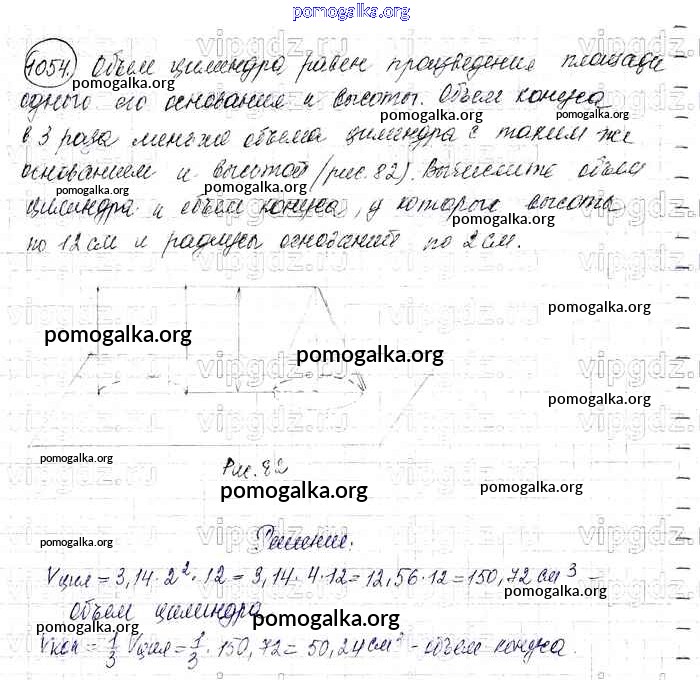 pomogalka.org
1054. Объем цилиндра равен произведению площади
одного его основания и высоты. Объем конуса
в 3 раза меньше объема цилиндра с таким же
основанием и высотой (рис. 82). Вычислите объем
цилиндра и объем конуса, у которых высоты
по 12 см и радиусы оснований по 2 см.
pomogalka.org
pomogalka.org
pomogalka.org
pomogalka.org
pomogalka.org
pomogalka.org
pomogalka.org
pomogalka.org
pomogalka.org
pomogalka.org
pomogalka.org
pomogalka.org
Рис. 82
pomogalka.org
pomogalka.org
Решение:
pomogalka.org
Vцил = 3,14 · 2² · 12 = 3,14 · 4 · 12 = 12,56 · 12 = 150,72 см³ –
pomogalka.org
объем цилиндра
pomogalka.org
pomogalka.org
Vкон = 1/3 Vцил = 1/3 · 150,72 = 50,24 см³ - объем конуса.
pomogalka.org
vipgdz.ru